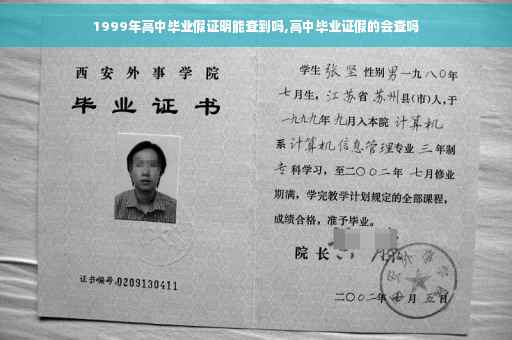 1999年高中毕业假证明能查到吗,高中毕业证假的会查吗
西安外事学院
毕业证书
证书编号:0209130411
学生 张坚 性别 男 一九八〇年
七月生, 江苏省 苏州县(市)人,于
一九九九年 九月入本院 计算机
系 计算机信息管理专业 三 年制
专科学习, 至二〇〇二年 七月修业
期满, 学完教学计划规定的全部课程,
成绩合格, 准予毕业。
院长
二〇〇二年 七月 五日